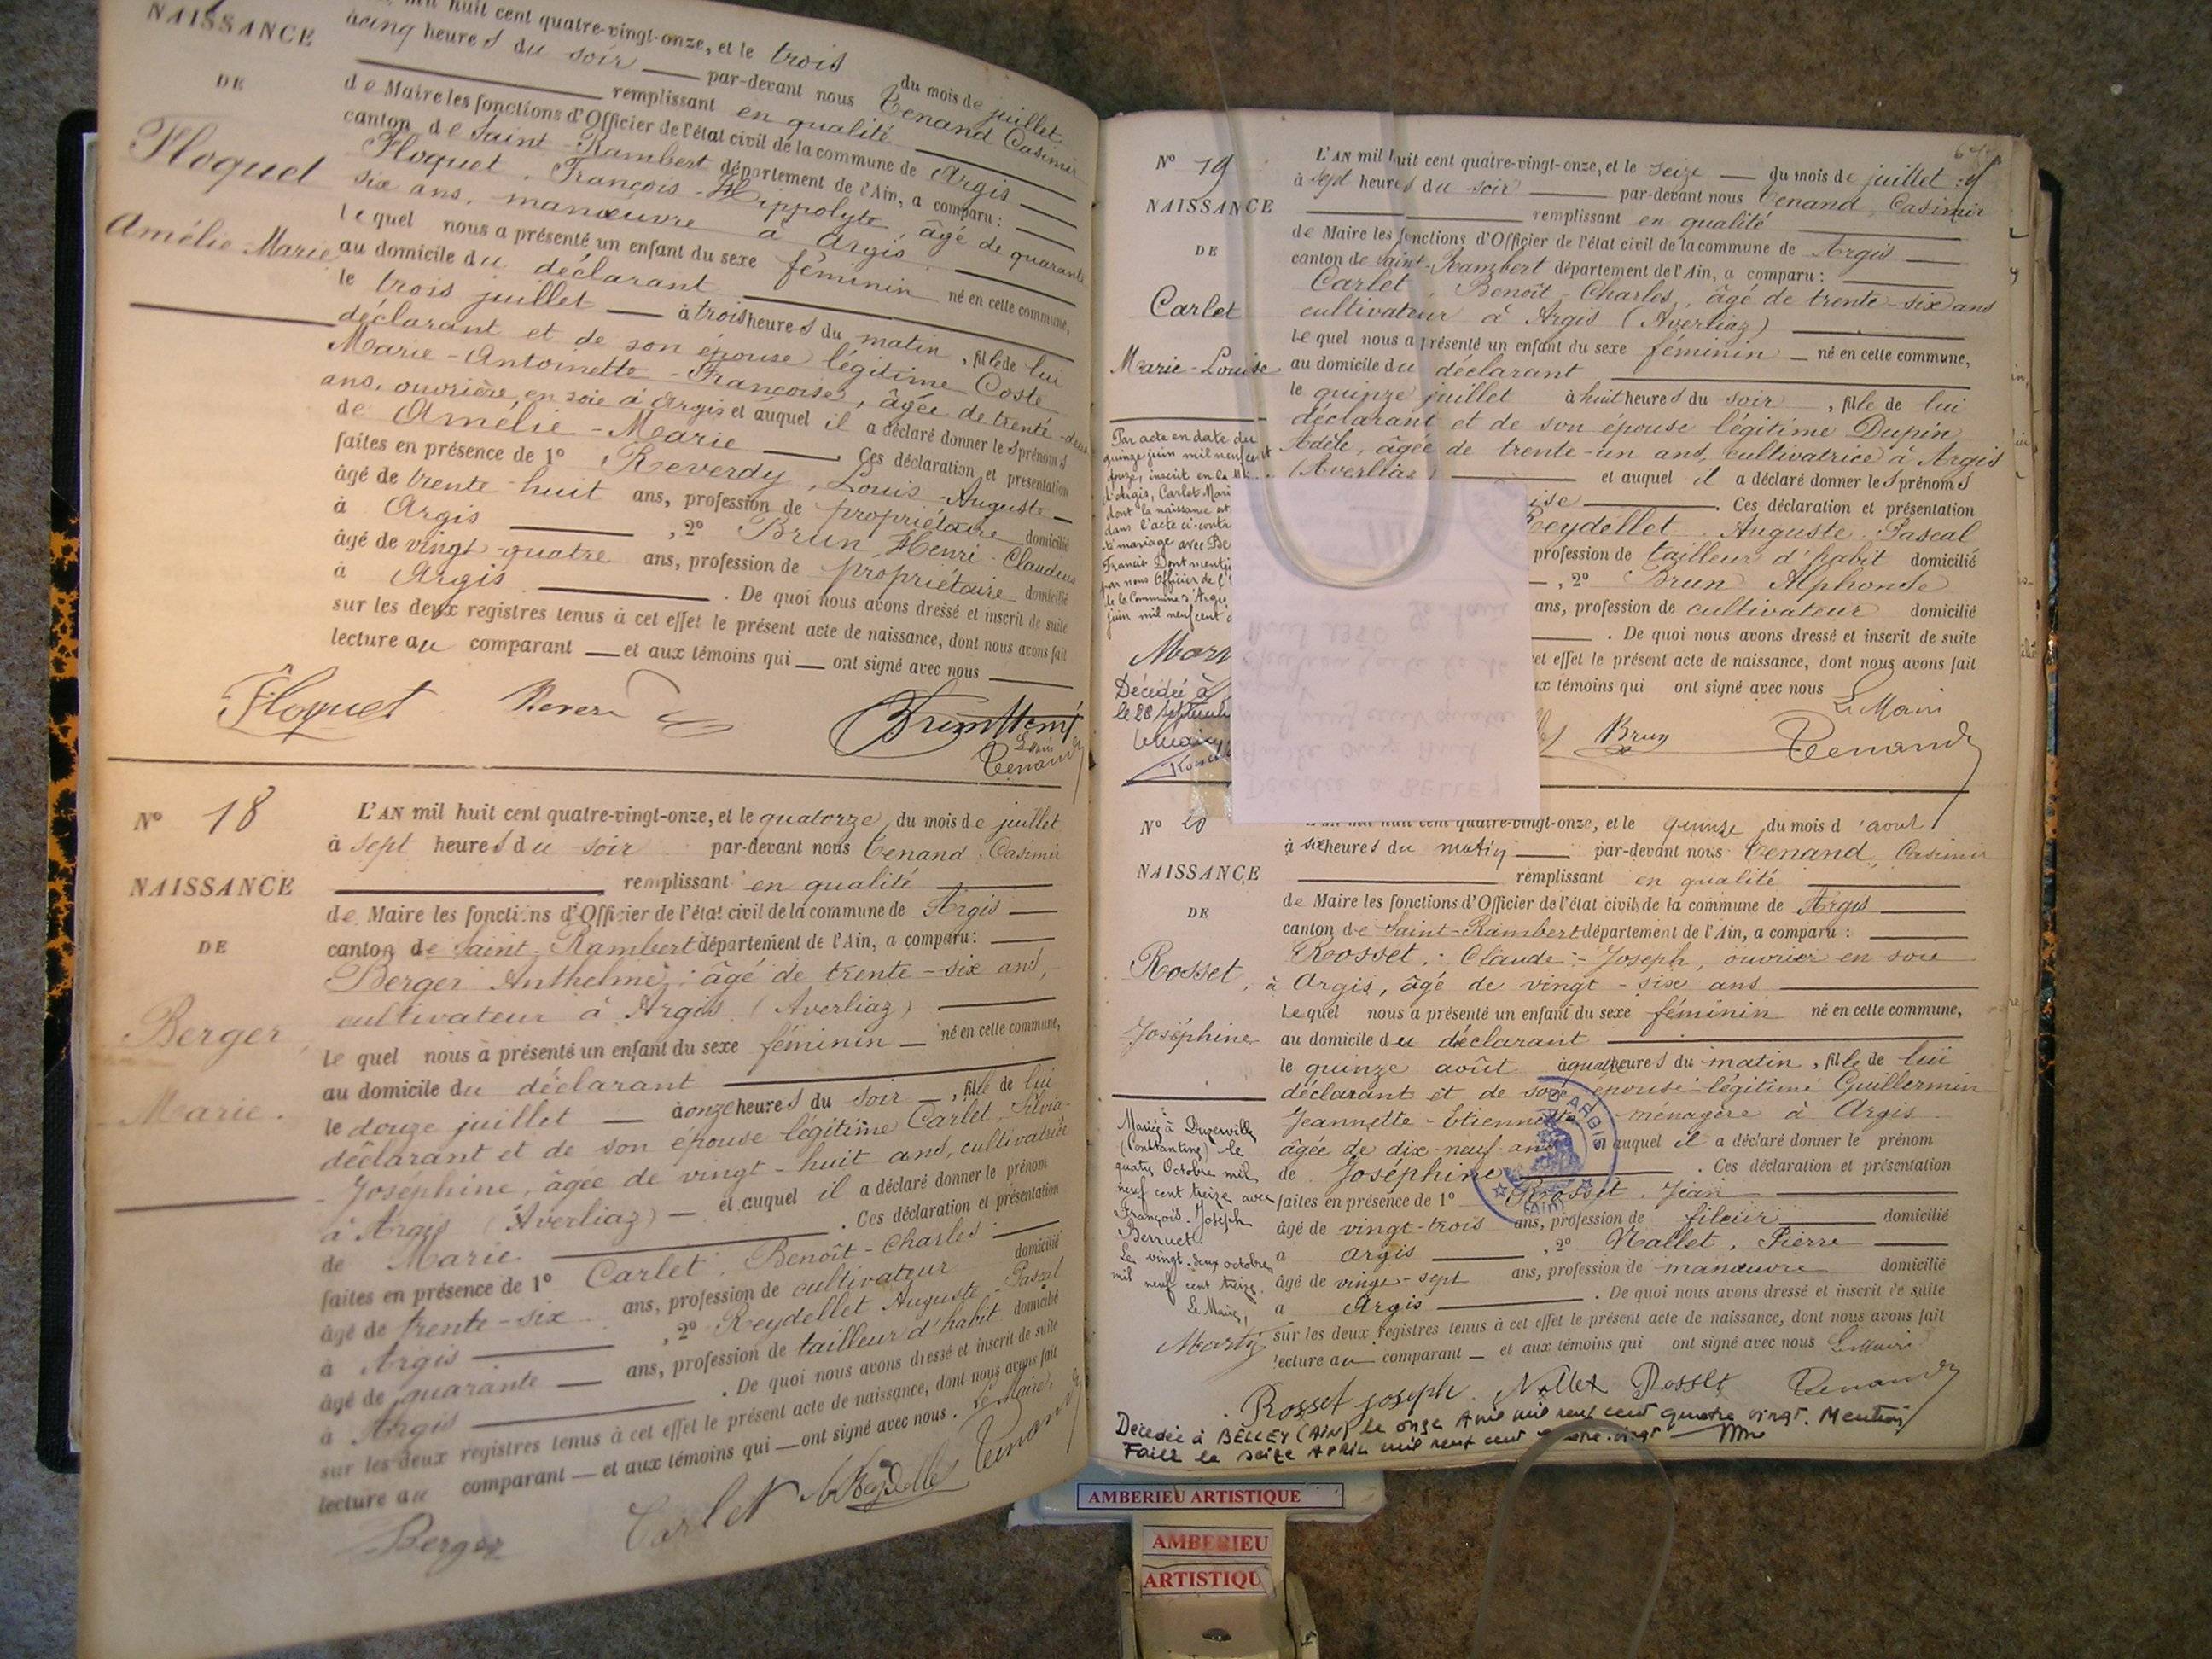 NAISSANCE
DE
Floquet
Amélie-Marie
mil huit cent quatre-vingt-onze, et le trois du mois de juillet
à cinq heures du soir — par-devant nous Tenand Casimir
remplissant en qualité
de Maire les fonctions d'Officier de l'état civil de la commune de Argis
canton de Saint-Rambert département de l'Ain, a comparu :
Floquet, François-Hippolyte, âgé de quarante
six ans, manœuvre à Argis
lequel nous a présenté un enfant du sexe féminin né en cette commune,
au domicile du déclarant
le trois juillet — à trois heures du matin, fille de lui
déclarant et de son épouse légitime Coste
Marie-Antoinette-Françoise, âgée de trente-deux
ans, ouvrière en soie à Argis et auquel il a déclaré donner les prénoms
de Amélie-Marie — Ces déclaration et présentation
faites en présence de 1° Reverdy, Louis-Auguste
âgé de trente-huit ans, profession de propriétaire domicilié
à Argis — , 2° Brun, Henri-Claudius
âgé de vingt-quatre ans, profession de propriétaire domicilié
à Argis — . De quoi nous avons dressé et inscrit de suite
sur les deux registres tenus à cet effet le présent acte de naissance, dont nous avons fait
lecture au comparant — et aux témoins qui — ont signé avec nous
Floquet Rever Brun Henri
Tenand
N° 18
NAISSANCE
DE
Berger
Marie.
L'AN mil huit cent quatre-vingt-onze, et le quatorze du mois de juillet
à sept heures du soir par-devant nous Tenand, Casimir
remplissant en qualité
de Maire les fonctions d'Officier de l'état civil de la commune de Argis
canton de Saint-Rambert département de l'Ain, a comparu :
Berger Anthelme, âgé de trente-six ans,
cultivateur à Argis (Averliaz)
lequel nous a présenté un enfant du sexe féminin — né en cette commune,
au domicile du déclarant
le douze juillet — à onze heures du soir —, fille de lui
déclarant et de son épouse légitime Carlet, Silvia-
Joséphine, âgée de vingt-huit ans, cultivatrice
à Argis (Averliaz) — et auquel il a déclaré donner le prénom
de Marie — . Ces déclaration et présentation
faites en présence de 1° Carlet, Benoît-Charles
âgé de trente-six ans, profession de cultivateur domicilié
à Argis — , 2° Reydellet Auguste-Pascal
âgé de quarante — ans, profession de tailleur d'habit domicilié
à Argis — . De quoi nous avons dressé et inscrit de suite
sur les deux registres tenus à cet effet le présent acte de naissance, dont nous avons fait
lecture au comparant — et aux témoins qui — ont signé avec nous. Le Maire,
Berger Carlet Tenand
N° 19
NAISSANCE
DE
Carlet
Marie-Louise
L'AN mil huit cent quatre-vingt-onze, et le seize — du mois de juillet
à sept heures du soir — par-devant nous Tenand, Casimir
remplissant en qualité
de Maire les fonctions d'Officier de l'état civil de la commune de Argis
canton de Saint-Rambert département de l'Ain, a comparu :
Carlet, Benoît-Charles, âgé de trente-six ans
cultivateur à Argis (Averliaz)
lequel nous a présenté un enfant du sexe féminin — né en cette commune,
au domicile du déclarant
le quinze juillet à huit heures du soir, fille de lui
déclarant et de son épouse légitime Dupin
Adèle, âgée de trente-un ans, cultivatrice à Argis
(Averliaz) — et auquel il a déclaré donner les prénoms
ise — . Ces déclaration et présentation
Reydellet Auguste-Pascal
profession de tailleur d'habit domicilié
—, 2° Brun Alphonse
ans, profession de cultivateur domicilié
. De quoi nous avons dressé et inscrit de suite
et effet le présent acte de naissance, dont nous avons fait
ux témoins qui ont signé avec nous Le Maire
Brun Tenand
Par acte en date du
quinze juin mil neuf cent
inscrit en la
d'Argis, Carlet Mari
dont la naissance est
dans l'acte ci-contre
mariage avec Be
Francis Dont mention
par nous Officier de l'
de la Commune d'Argis
juin mil neuf cent
Décédée à
le 28 Septembre
N° 20
NAISSANCE
DE
Rosset,
Joséphine
mil huit cent quatre-vingt-onze, et le quinze du mois d'août
à six heures du matin — par-devant nous Tenand, Casimir
remplissant en qualité
de Maire les fonctions d'Officier de l'état civil de la commune de Argis
canton de Saint-Rambert département de l'Ain, a comparu :
Rosset, Claude-Joseph, ouvrier en soie
à Argis, âgé de vingt-six ans
lequel nous a présenté un enfant du sexe féminin né en cette commune,
au domicile du déclarant
le quinze août à quatre heures du matin, fille de lui
déclarant et de son épouse légitime Guillermin
Jeannette-Etiennette ménagère à Argis
âgée de dix-neuf ans et auquel il a déclaré donner le prénom
de Joséphine — . Ces déclaration et présentation
faites en présence de 1° Rosset, Jean
âgé de vingt-trois ans, profession de fileur domicilié
à Argis — , 2° Nallet, Pierre
âgé de vingt-sept ans, profession de manœuvre domicilié
à Argis — . De quoi nous avons dressé et inscrit de suite
sur les deux registres tenus à cet effet le présent acte de naissance, dont nous avons fait
lecture au comparant — et aux témoins qui ont signé avec nous Le Maire
Rosset joseph. Nallet Rosset Tenand
D'ARGIS
(Ain)
Mariée à Duzerville
(Constantine) le
quatre Octobre mil
neuf cent treize avec
François-Joseph
Berruet
Le vingt-deux octobre
mil neuf cent treize.
Le Maire,
Marty
Décédée à BELLEY (AIN) le onze Avril mil neuf cent quatre vingt. Mention
Faite le seize AVRIL mil neuf cent quatre-vingt
AMBERIEU ARTISTIQUE
AMBERIEU
ARTISTIQU